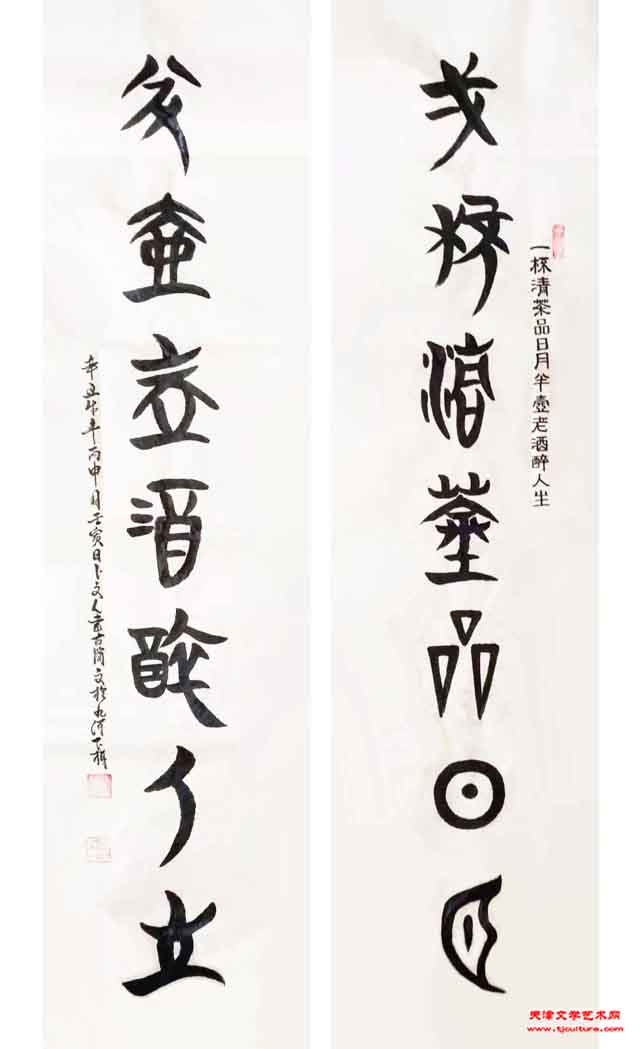 一杯清茶品日月半壺老酒醉人生
弌杯清茶品日月
半壺老酒醉人生
辛丑牛年丙申月壬寅日卜文人 古 文於九河下梢
天津文学艺术网
www.tjculture.com